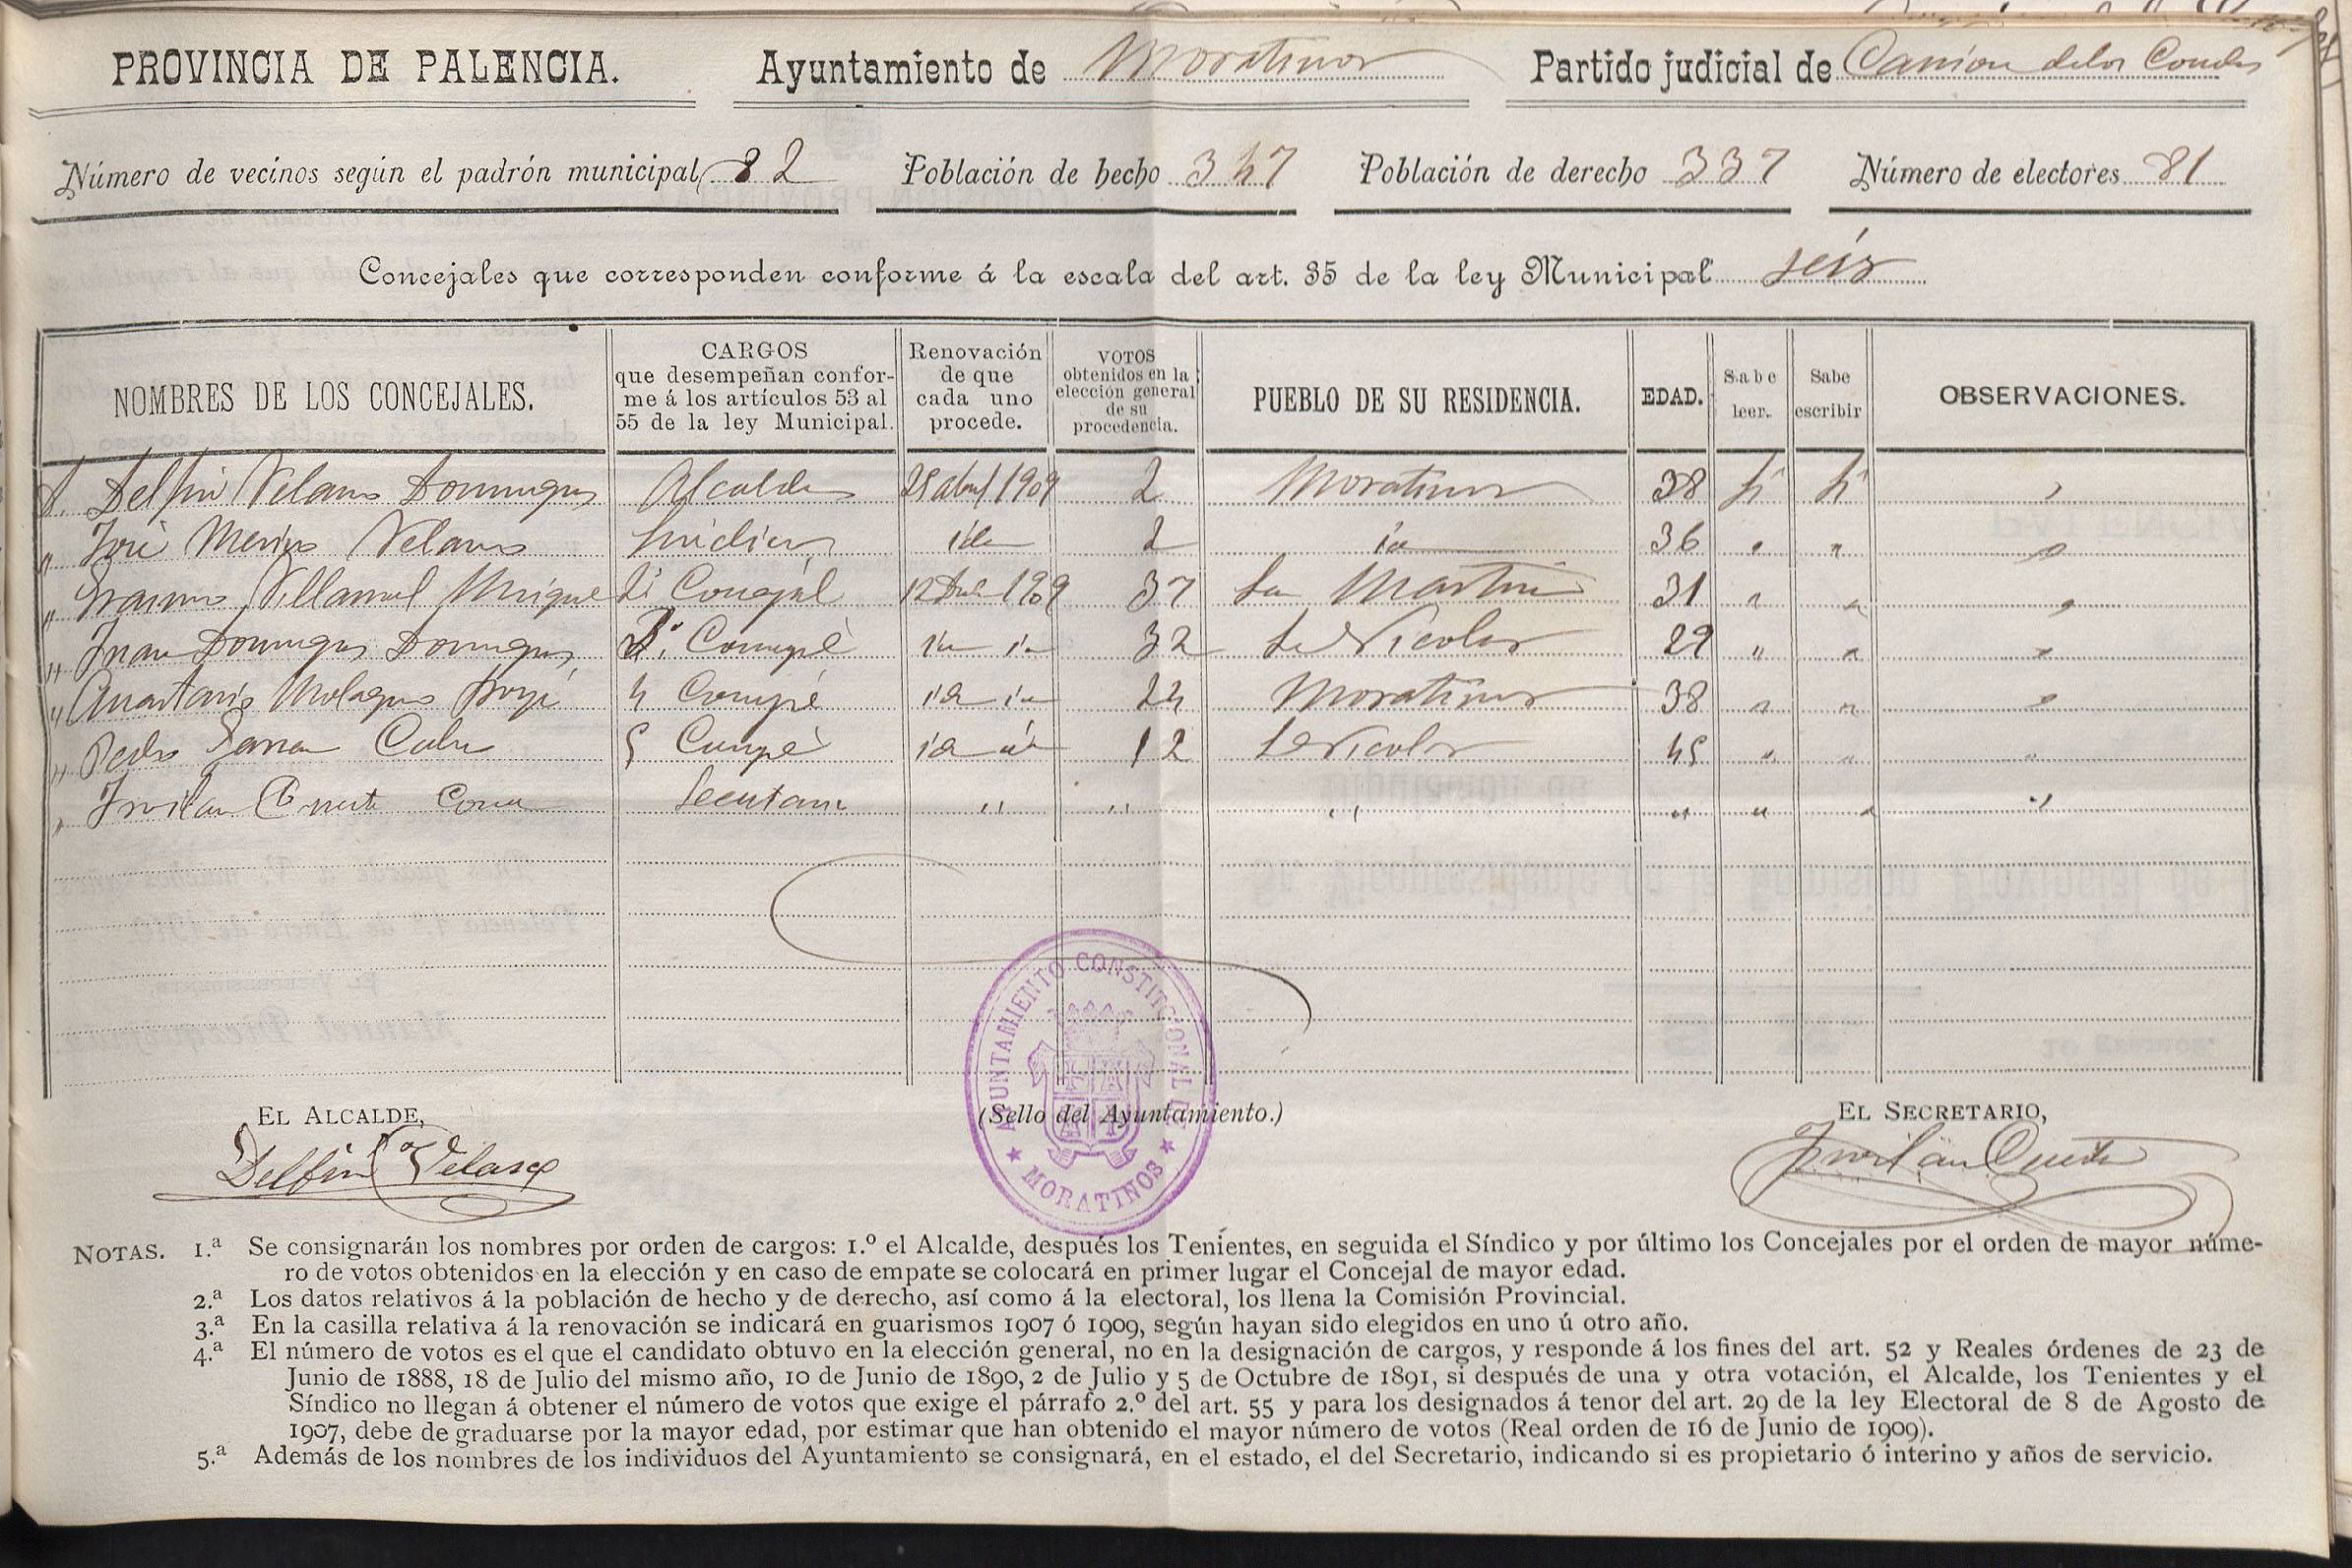 PROVINCIA DE PALENCIA. Ayuntamiento de Moratinos Partido judicial de Carrion de los Condes
Número de vecinos según el padrón municipal 82 Población de hecho 347 Población de derecho 337 Número de electores 81
Concejales que corresponden conforme á la escala del art. 35 de la ley Municipal seis
NOMBRES DE LOS CONCEJALES. CARGOS que desempeñan confor-me á los artículos 53 al 55 de la ley Municipal. Renovación de que cada uno procede. VOTOS obtenidos en la elección general de su procedencia. PUEBLO DE SU RESIDENCIA. EDAD. Sabe leer. Sabe escribir OBSERVACIONES.
D. Delfin Velasco Dominguez Alcalde 1909 2 Moratinos 38 si si "
" José Merino Velasco Sindico id 2 id 36 " " "
" Villamuel 2º Concejal 12 1909 37 Sn Martin 31 " " "
" Juan Dominguez Dominguez 3º Concejal id id 32 Sn Nicolas 29 " " "
" Anastasio 4 Concejal id id 24 Moratinos 38 " " "
" Pedro 5 Concejal id id 12 Sn Nicolas 45 " " "
" Froilan Cuesta Secretario " " " " " " "
EL ALCALDE, (Sello del Ayuntamiento.) EL SECRETARIO,
AYUNTAMIENTO CONSTITUCIONAL DE
★ MORATINOS ★
Delfin Velasco Froilan Cuesta
NOTAS. 1.ª Se consignarán los nombres por orden de cargos: 1.º el Alcalde, después los Tenientes, en seguida el Síndico y por último los Concejales por el orden de mayor núme-
ro de votos obtenidos en la elección y en caso de empate se colocará en primer lugar el Concejal de mayor edad.
2.ª Los datos relativos á la población de hecho y de derecho, así como á la electoral, los llena la Comisión Provincial.
3.ª En la casilla relativa á la renovación se indicará en guarismos 1907 ó 1909, según hayan sido elegidos en uno ú otro año.
4.ª El número de votos es el que el candidato obtuvo en la elección general, no en la designación de cargos, y responde á los fines del art. 52 y Reales órdenes de 23 de
Junio de 1888, 18 de Julio del mismo año, 10 de Junio de 1890, 2 de Julio y 5 de Octubre de 1891, si después de una y otra votación, el Alcalde, los Tenientes y el
Síndico no llegan á obtener el número de votos que exige el párrafo 2.º del art. 55 y para los designados á tenor del art. 29 de la ley Electoral de 8 de Agosto de
1907, debe de graduarse por la mayor edad, por estimar que han obtenido el mayor número de votos (Real orden de 16 de Junio de 1909).
5.ª Además de los nombres de los individuos del Ayuntamiento se consignará, en el estado, el del Secretario, indicando si es propietario ó interino y años de servicio.